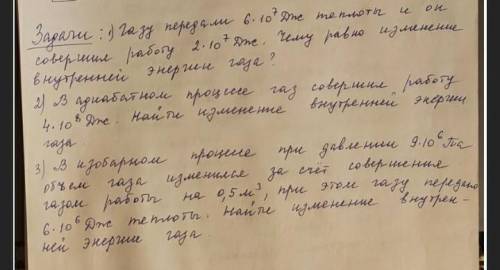 Задачи: 1) Газу передали 6·10⁷ Дж теплоты и он
совершил работу 2·10⁷ Дж. Чему равно изменение
внутренней энергии газа?
2) В адиабатном процессе газ совершил работу
4·10⁸ Дж. Найти изменение внутренней энергии
газа
3) В изобарном процессе при давлении 9·10⁶ Па
объем газа изменился за счёт совершения
газом работы на 0,5 м³, при этом газу передано
6·10⁶ Дж теплоты. Найти изменение внутрен-
ней энергии газа.